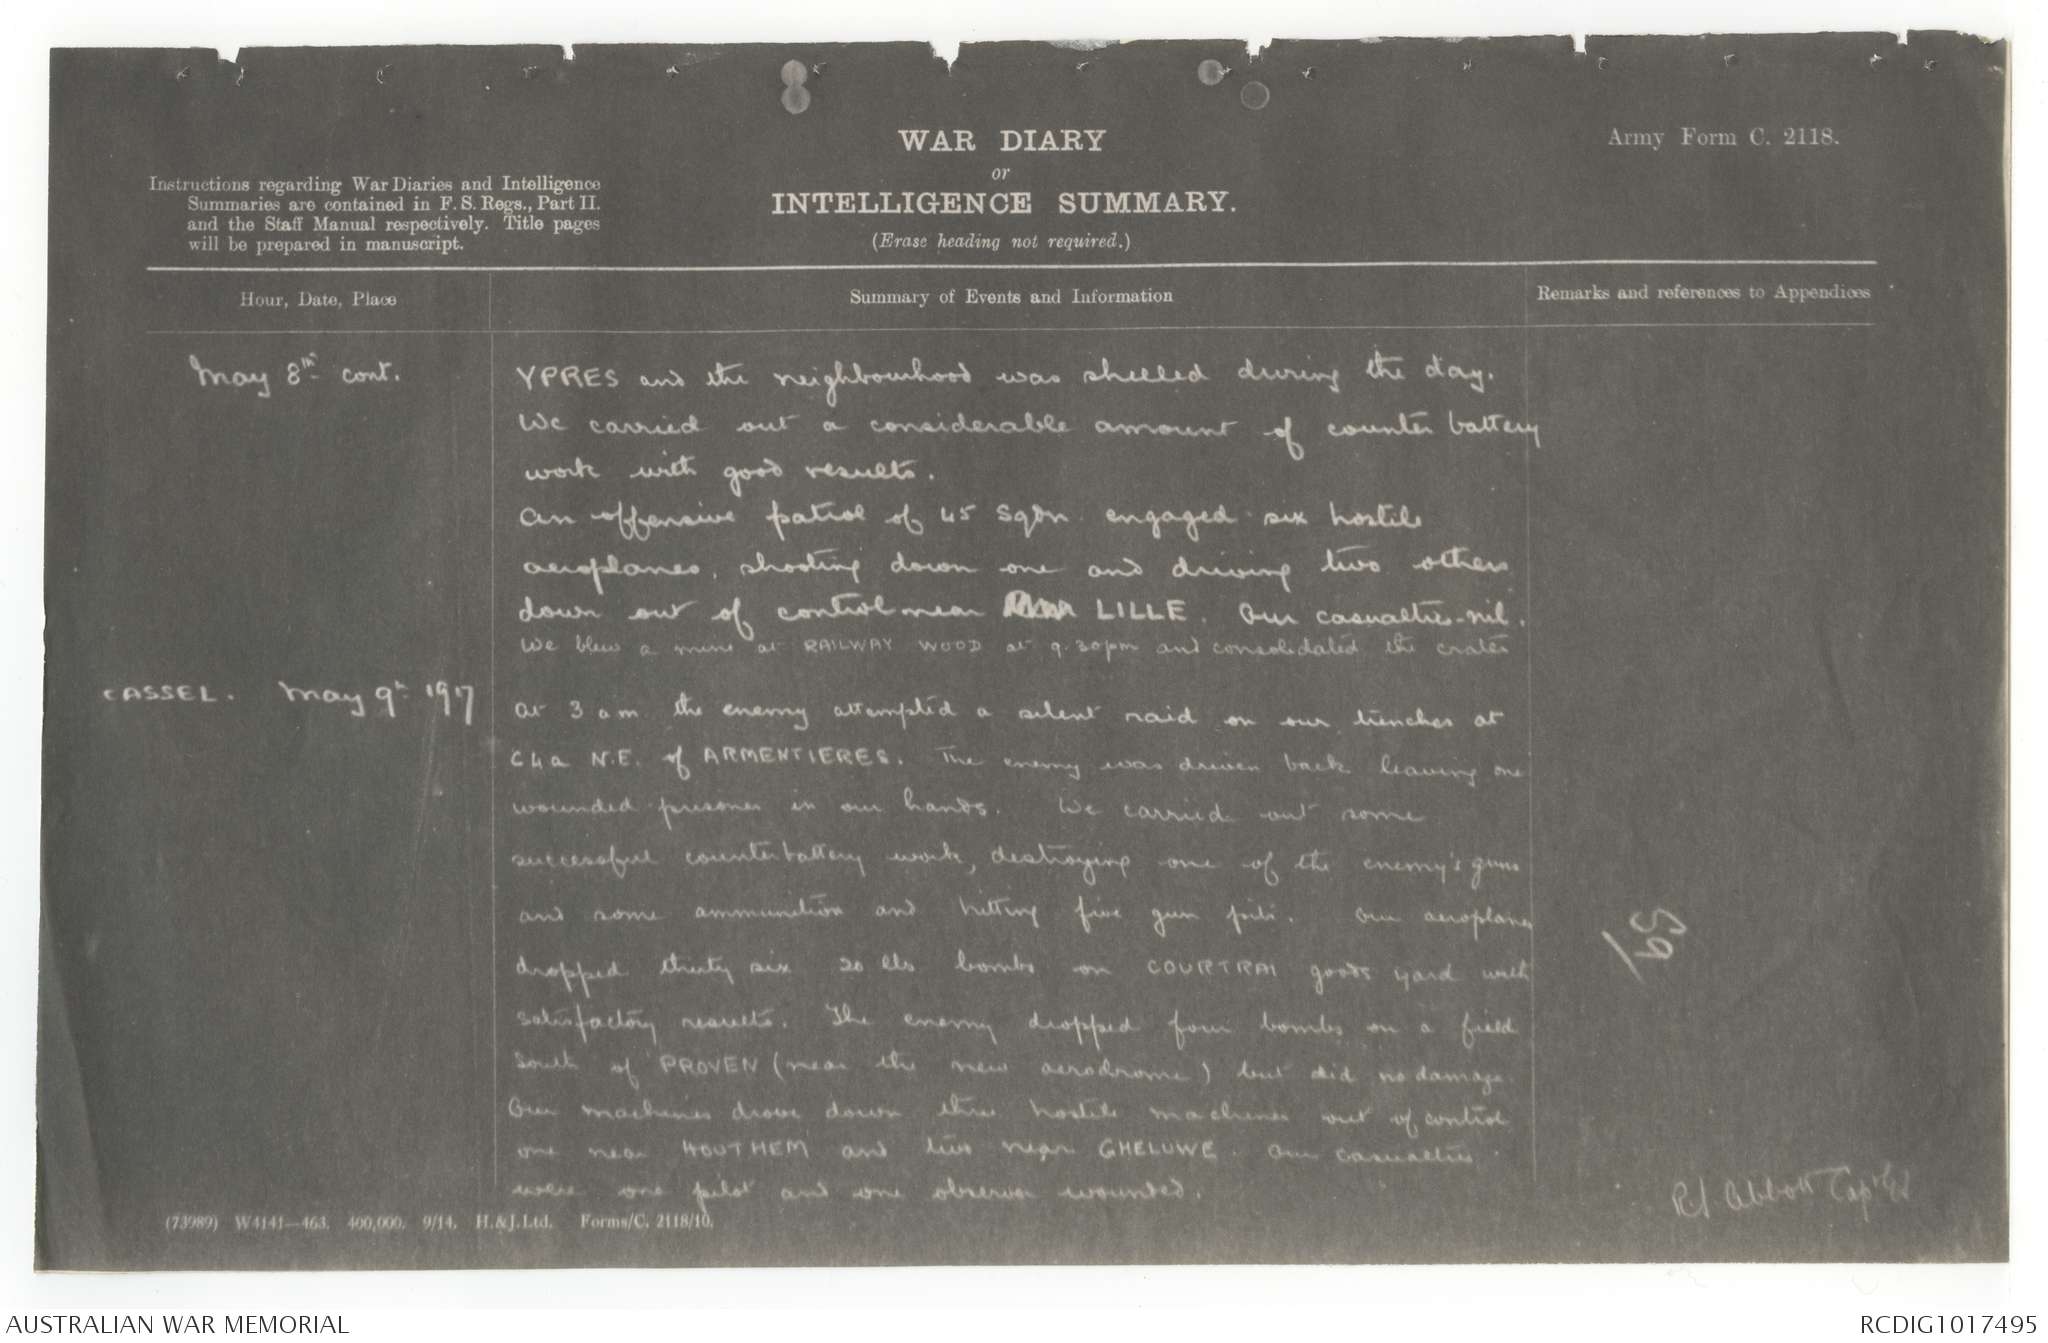 WAR DIARY
or
INTELLIGENCE SUMMARY.
(Erase heading not required.)
Army Form C. 2118.
Instructions regarding War Diaries and Intelligence
Summaries are contained in F. S. Regs., Part II.
and the Staff Manual respectively. Title pages
will be prepared in manuscript.
Hour, Date, Place
Summary of Events and Information
Remarks and references to Appendices
May 8th cont.
YPRES and the neighbourhood was shelled during the day.
We carried out a considerable amount of counter battery
work with good results.
An offensive patrol of 45 Sqdn engaged six hostile
aeroplanes, shooting down one and driving two others
down out of control near LILLE. Our casualties - nil.
We blew a mine at RAILWAY WOOD at 9.30pm and consolidated the crater
CASSEL. May 9th 1917
At 3 am the enemy attempted a silent raid on our trenches at
C4a N.E. of ARMENTIERES. The enemy was driven back leaving one
wounded prisoner in our hands. We carried out some
successful counter battery work, destroying one of the enemy's guns
and some ammunition and hitting five gun pits. Our aeroplanes
dropped thirty six 20 lb bombs on COURTRAI goods yard with
satisfactory results. The enemy dropped four bombs on a field
South of PROVEN (near the new aerodrome) but did no damage.
Our machines drove down three hostile machines out of control
one near HOUTHEM and two near GHELUWE. Our casualties
were one pilot and one observer wounded.
59/
R J Abbott Capt GS
(73989) W4141—463. 400,000. 9/14. H.&J.Ltd. Forms/C. 2118/10.
AUSTRALIAN WAR MEMORIAL
RCDIG1017495